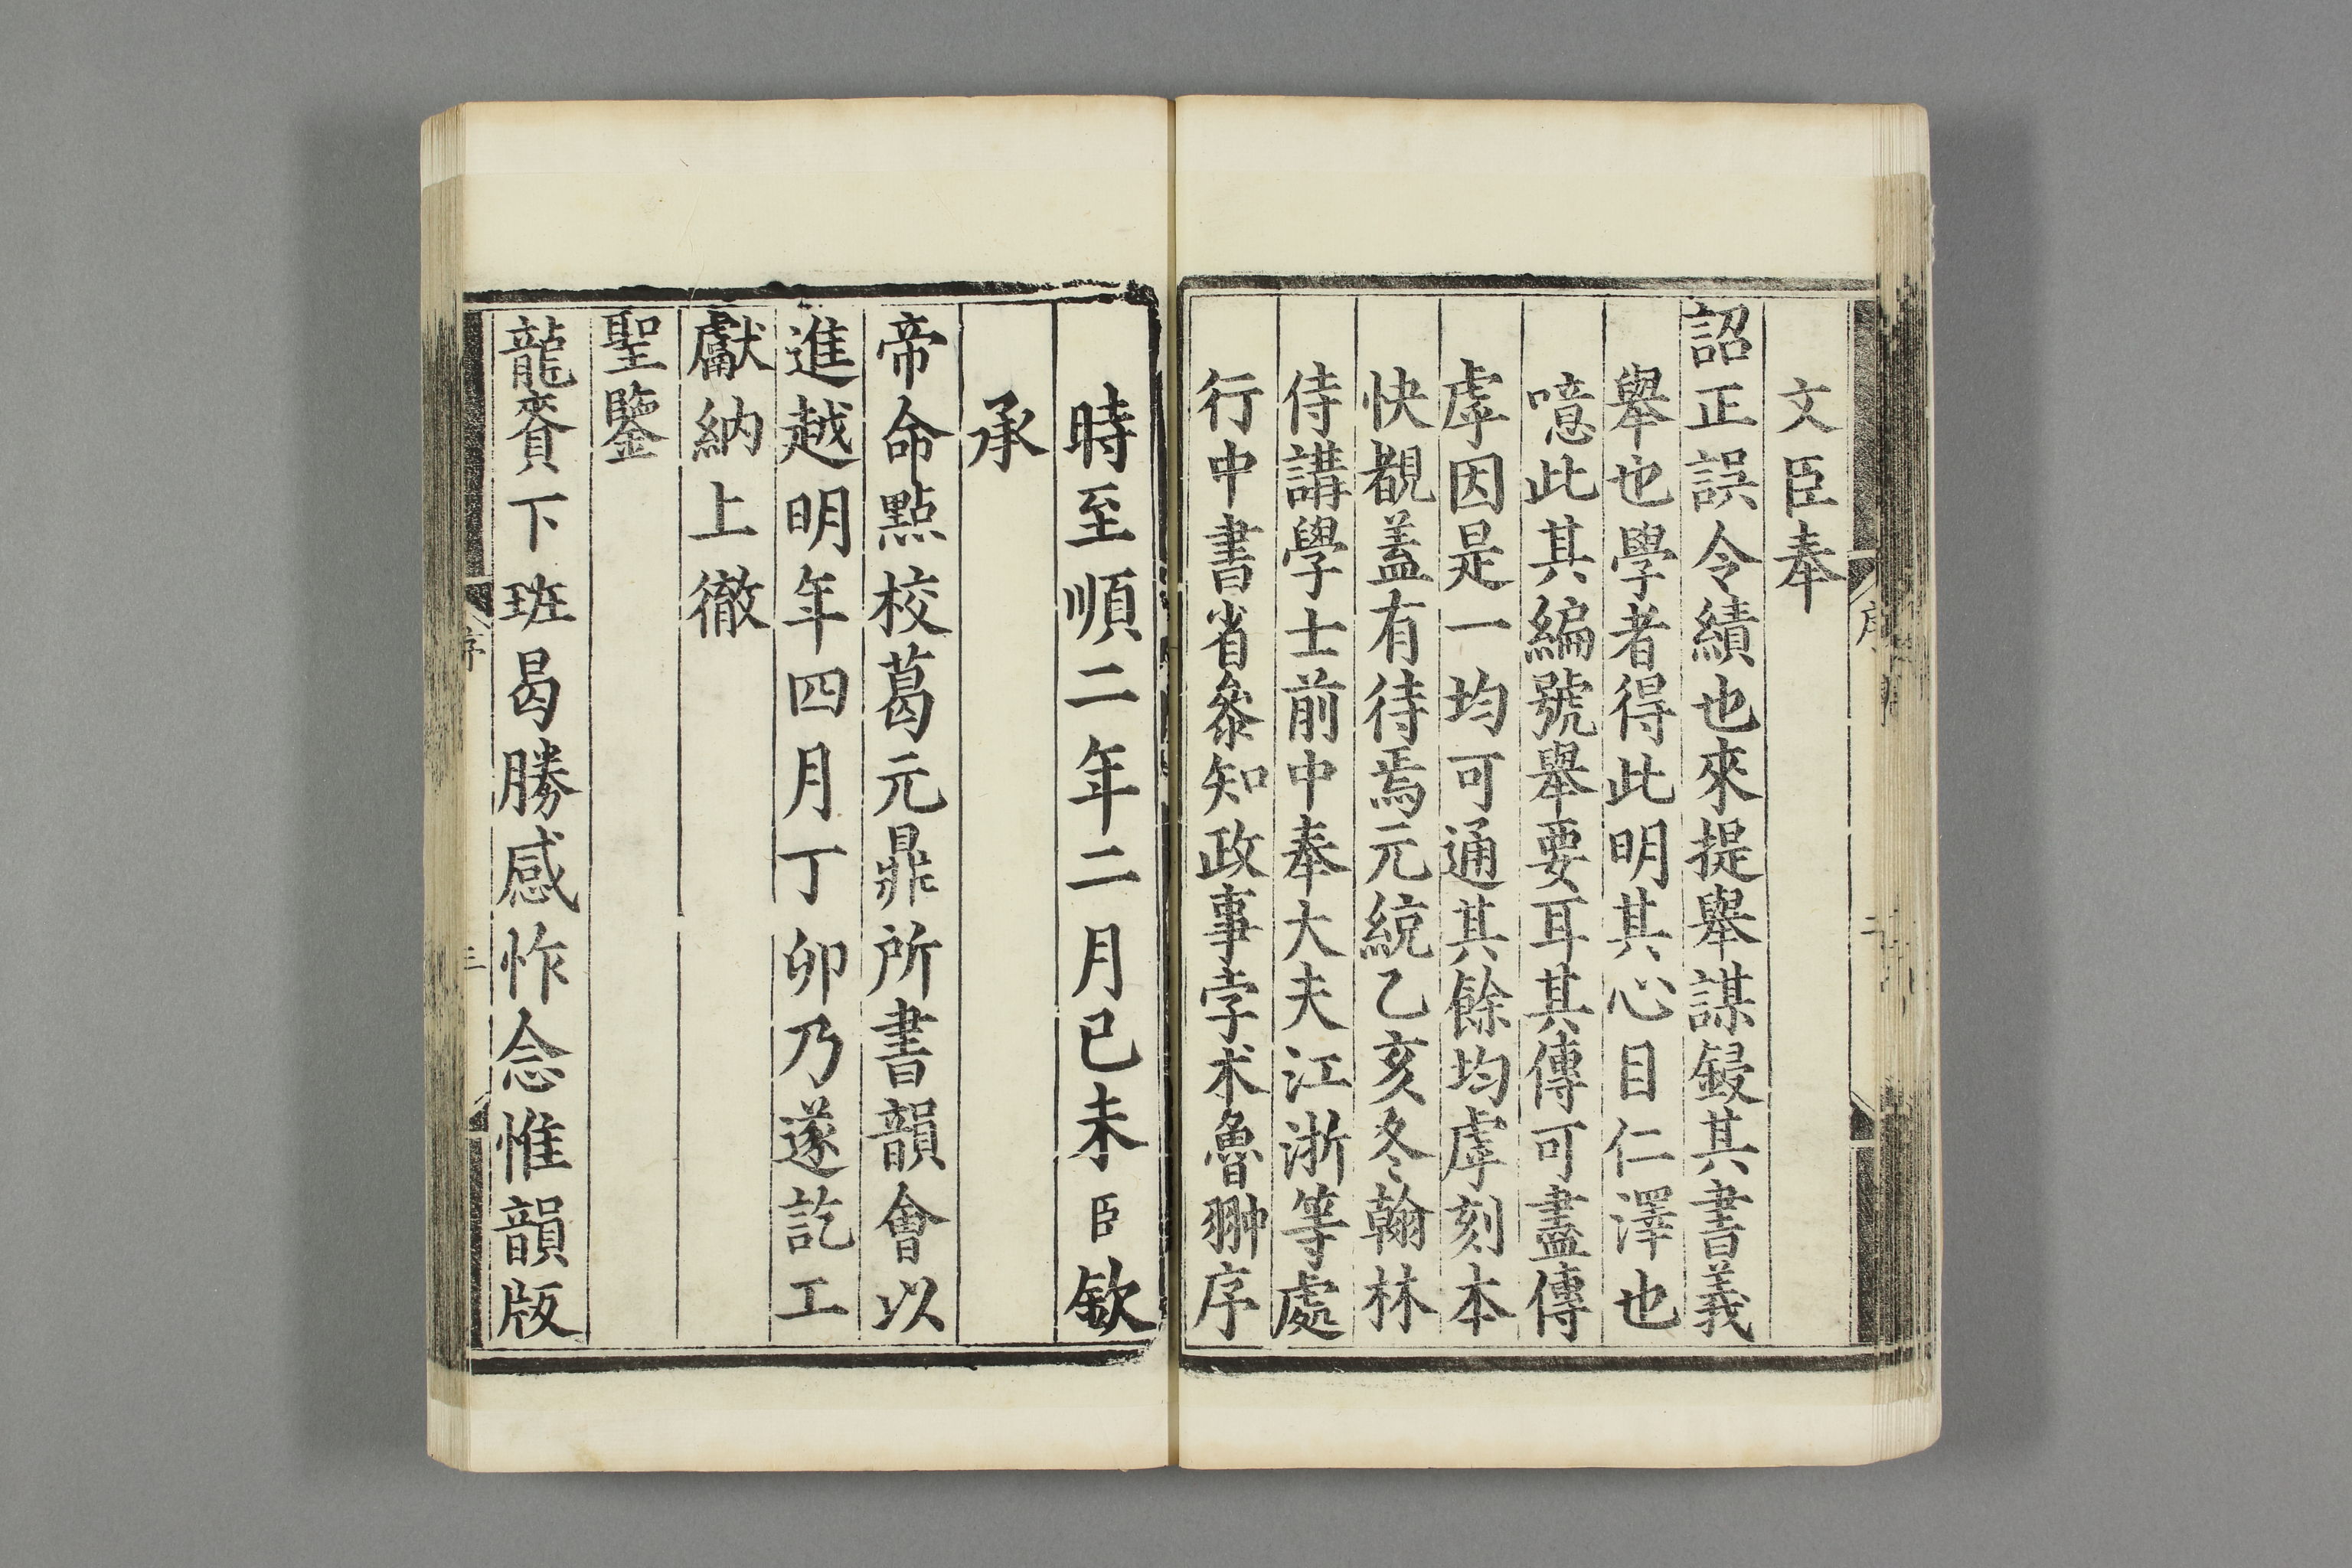 文臣奉
詔正誤令績也來提舉謀鋟其書義
舉也學者得此明其心目仁澤也
噫此其編號舉要耳其傳可盡傳
虖因是一均可通其餘均虖刻本
快覩盖有待焉元統乙亥冬翰林
侍講學士前中奉大夫江浙等處
行中書省叅知政事孛术魯翀序
時至順二年二月已未臣欽
承
帝命點校葛元鼎所書韻會以
進越明年四月丁卯乃遂訖工
獻納上徹
聖鑒
龍賚下班曷勝感怍念惟韻版
序
二
序
三